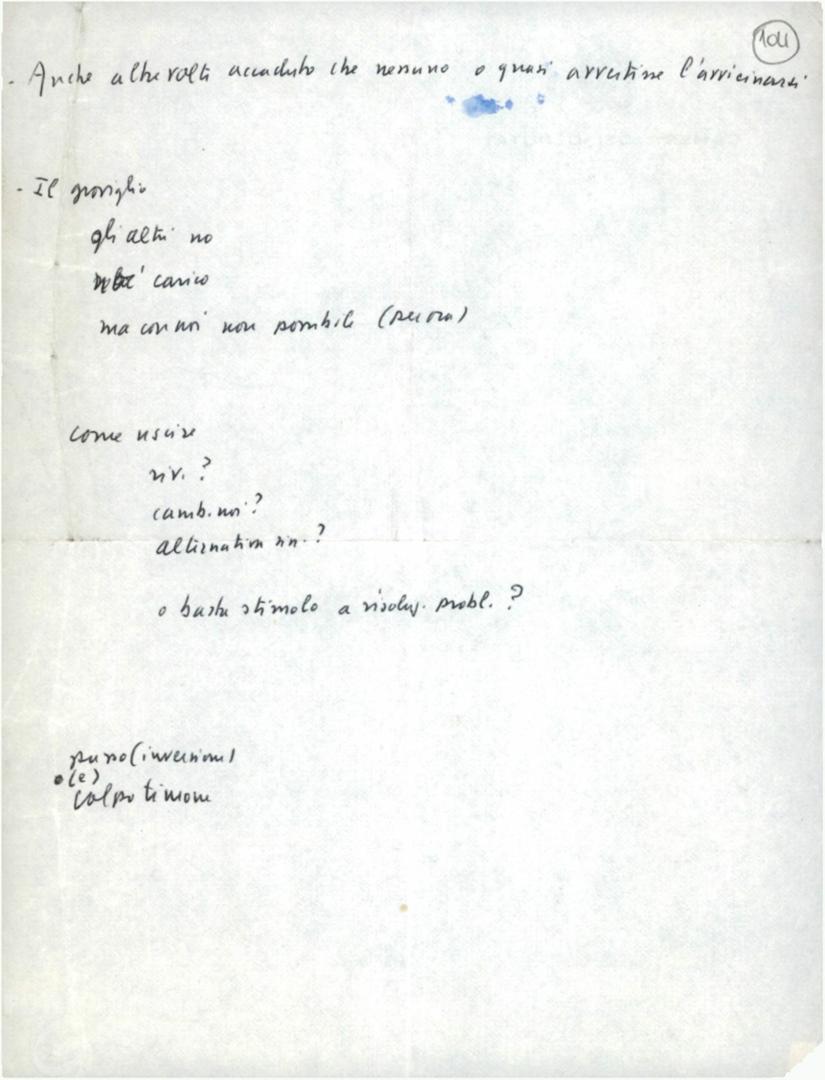 104
- Anche altre volte accaduto che nessuno o quasi avvertisse l'avvicinarsi
- Il groviglio
gli altri no
carico
ma con noi non possibile (ancora)
come uscire
riv. ?
camb. noi ?
alternativa sin. ?
o basta stimolo a risoluz. probl. ?
passo (inversione)
o (e)
colpo timone